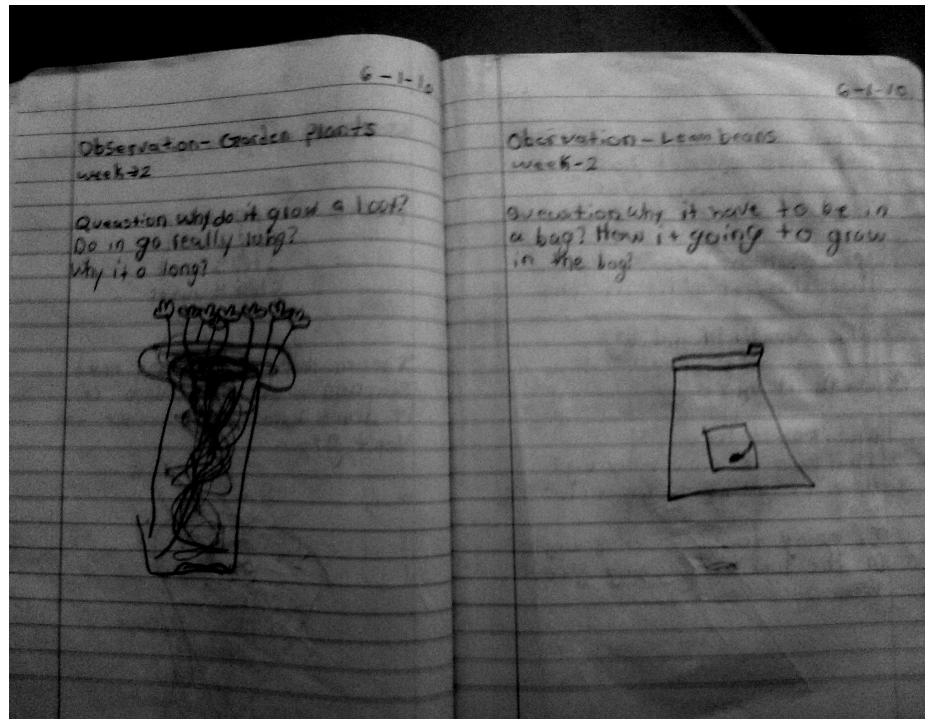 6-1-10
Observation- Garden plants
week-2
Queustion why do it grow a loot?
Do in go really long?
why it a long?
6-1-10
Obsrvation-
week-2
queustion why it have to be in
a bag? How it going to grow
in the bag?